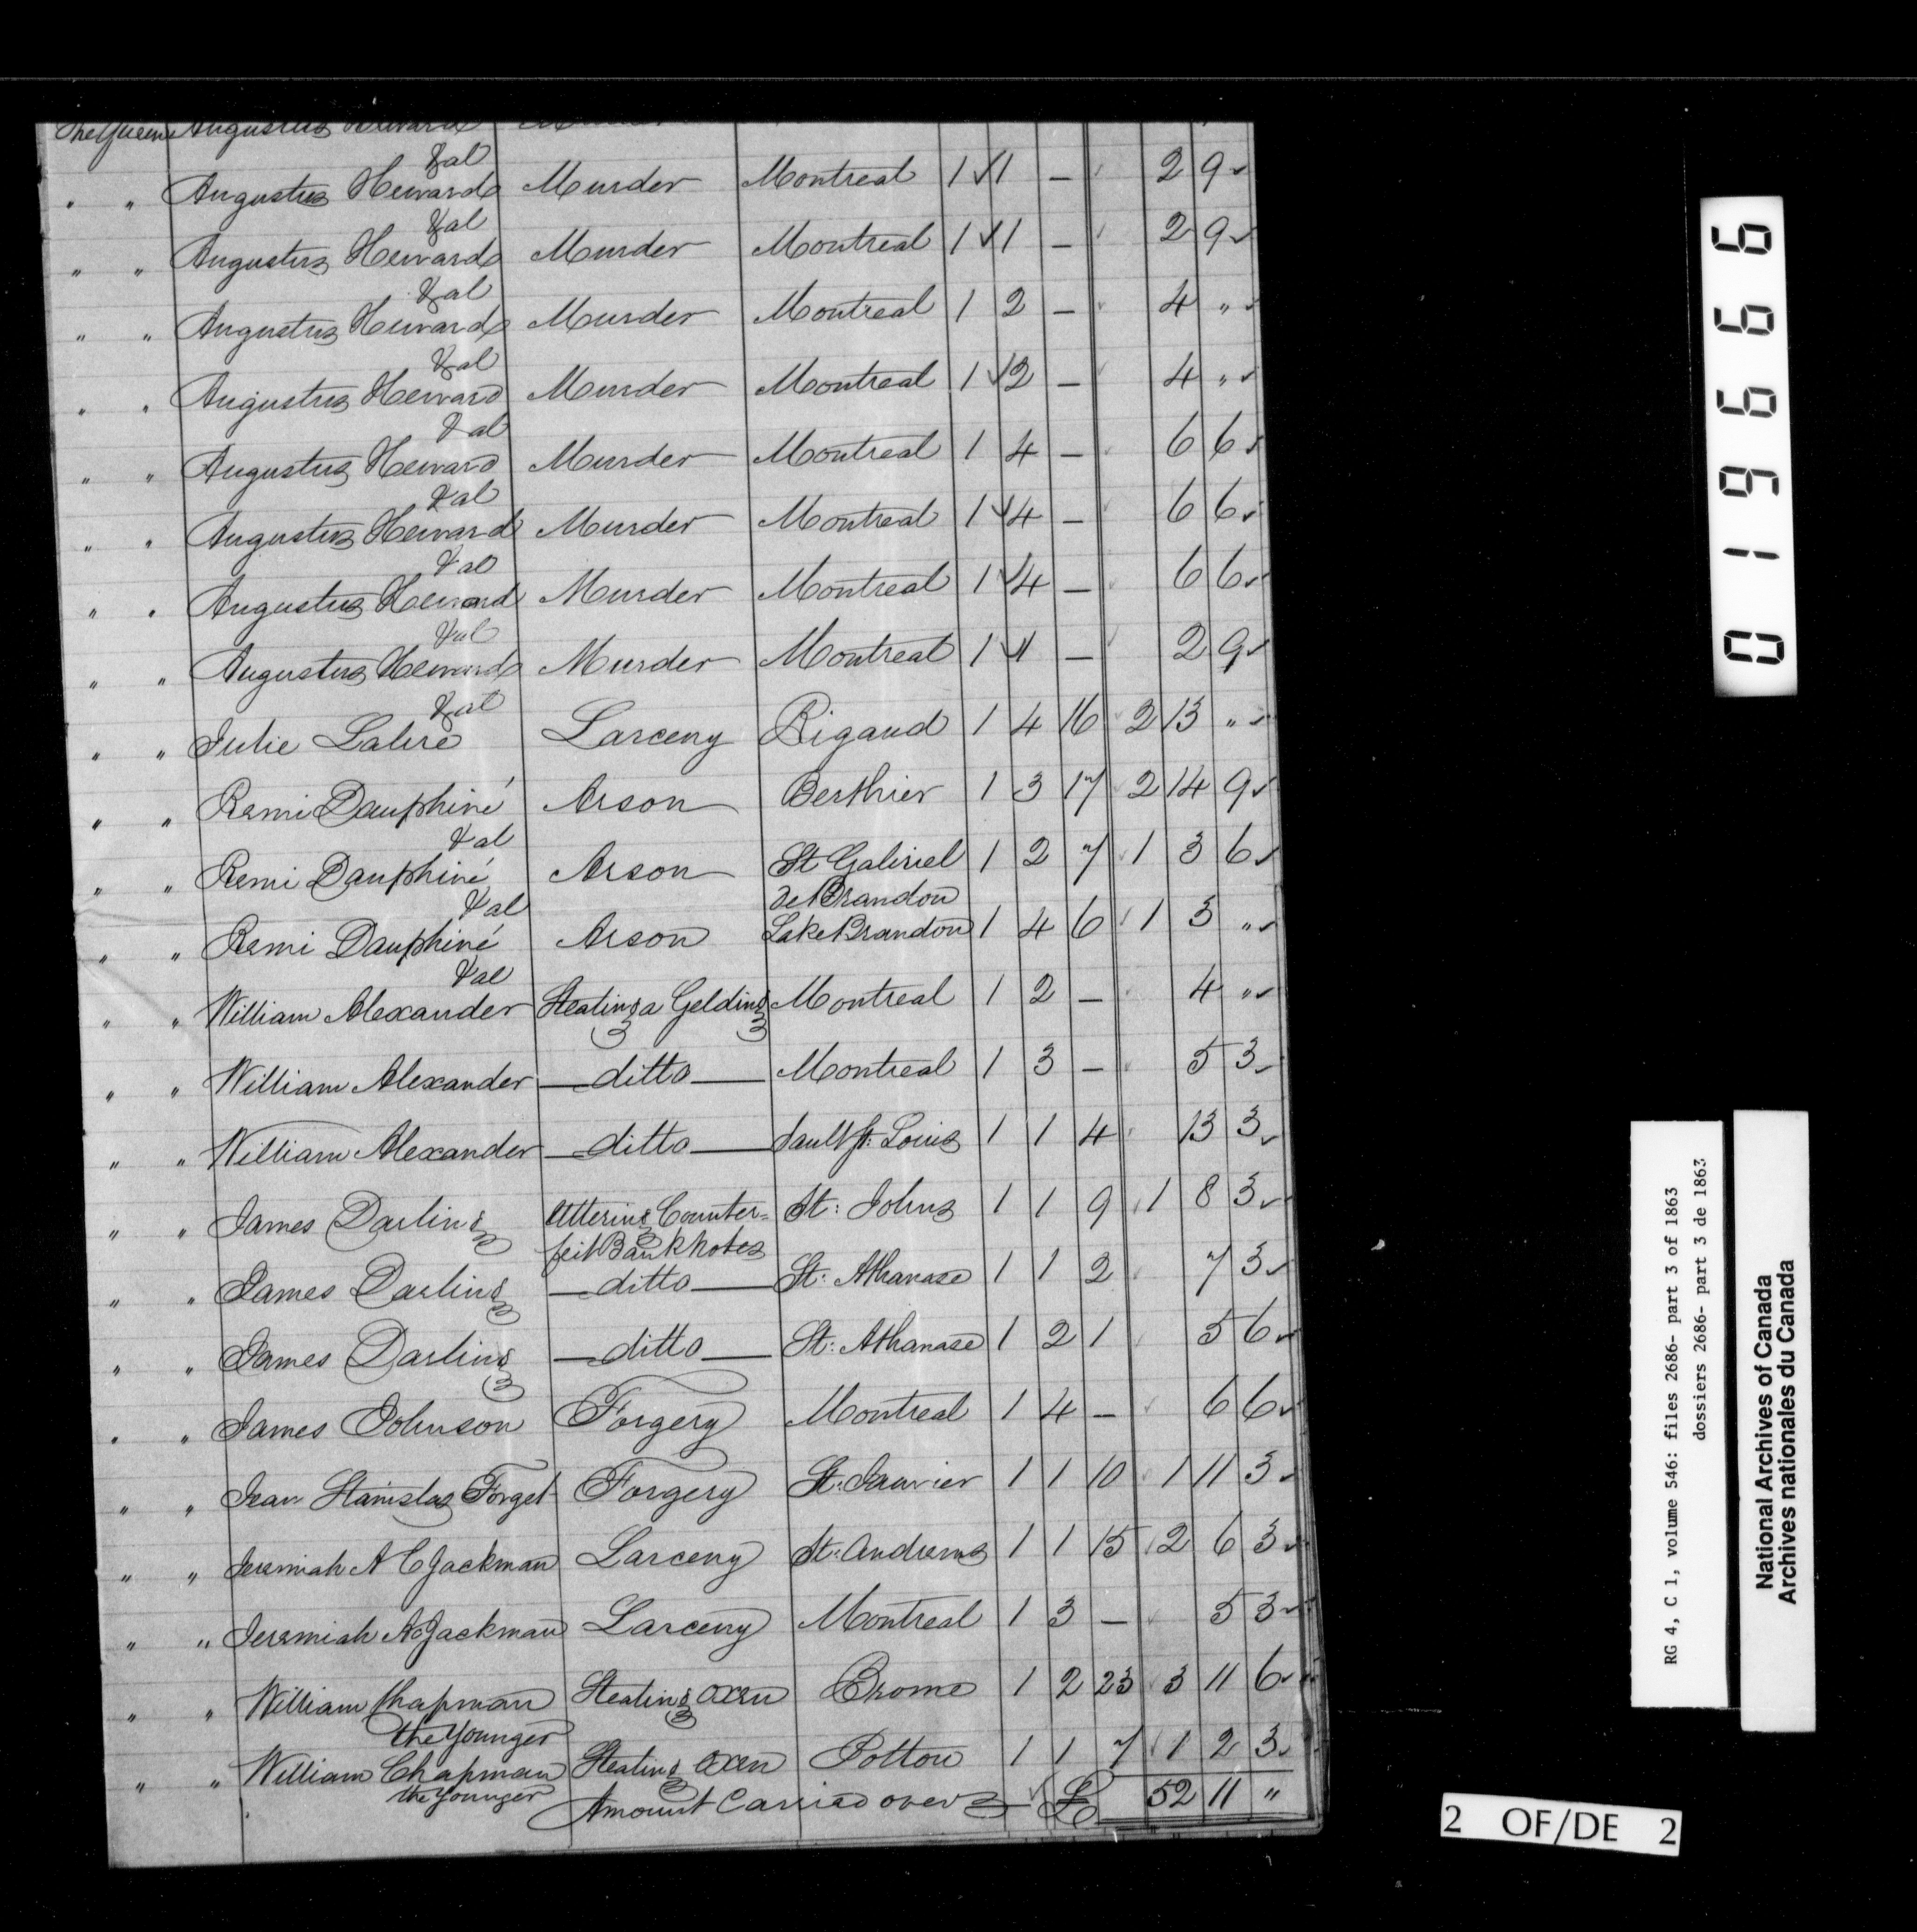 The Queen Augustus Heward
" " Augustus Heward &al Murder Montreal 1 1 — 2 9
" " Augustus Heward &al Murder Montreal 1 1 — 2 9
" " Augustus Heward &al Murder Montreal 1 2 — 4 "
" " Augustus Heward &al Murder Montreal 1 2 — 4 "
" " Augustus Heward &al Murder Montreal 1 4 — 6 6
" " Augustus Heward &al Murder Montreal 1 4 — 6 6
" " Augustus Heward &al Murder Montreal 1 4 — 6 6
" " Augustus Heward &al Murder Montreal 1 1 — 2 9
" " Julie &al Larceny Rigaud 1 4 16 2 13 "
" " Remi Dauphiné Arson Berthier 1 3 17 2 14 9
" " Remi Dauphiné &al Arson St Gabriel 1 2 7 1 3 6
de Brandon
" " Remi Dauphiné &al Arson Lake Brandon 1 4 6 1 3 "
" " William Alexander &al Stealing a Gelding Montreal 1 2 — 4 "
" " William Alexander — ditto — Montreal 1 3 — 5 3
" " William Alexander — ditto — Sault St. Louis 1 1 4 13 3
" " James Darling Uttering Counter= St: Johns 1 1 9 1 8 3
feit Bank Notes
" " James Darling — ditto — St: Athanase 1 1 2 7 3
" " James Darling — ditto — St: Athanase 1 2 1 5 6
" " James Johnson Forgery Montreal 1 4 — 6 6
" " Jean Stanislas Forget Forgery St. Janvier 1 1 10 1 11 3
" " Jeremiah A C Jackman Larceny St: Andrews 1 1 15 2 6 3
" " Jeremiah AC Jackman Larceny Montreal 1 3 — 5 3
" " William Chapman Stealing Oxen Brome 1 2 23 3 11 6
the Younger
" " William Chapman Stealing Oxen Potton 1 1 7 1 2 3
the Younger
Amount Carried over £ 52 11 "
019666
RG 4, C 1, volume 546: files 2686- part 3 of 1863
dossiers 2686- part 3 de 1863
National Archives of Canada
Archives nationales du Canada
2 OF/DE 2